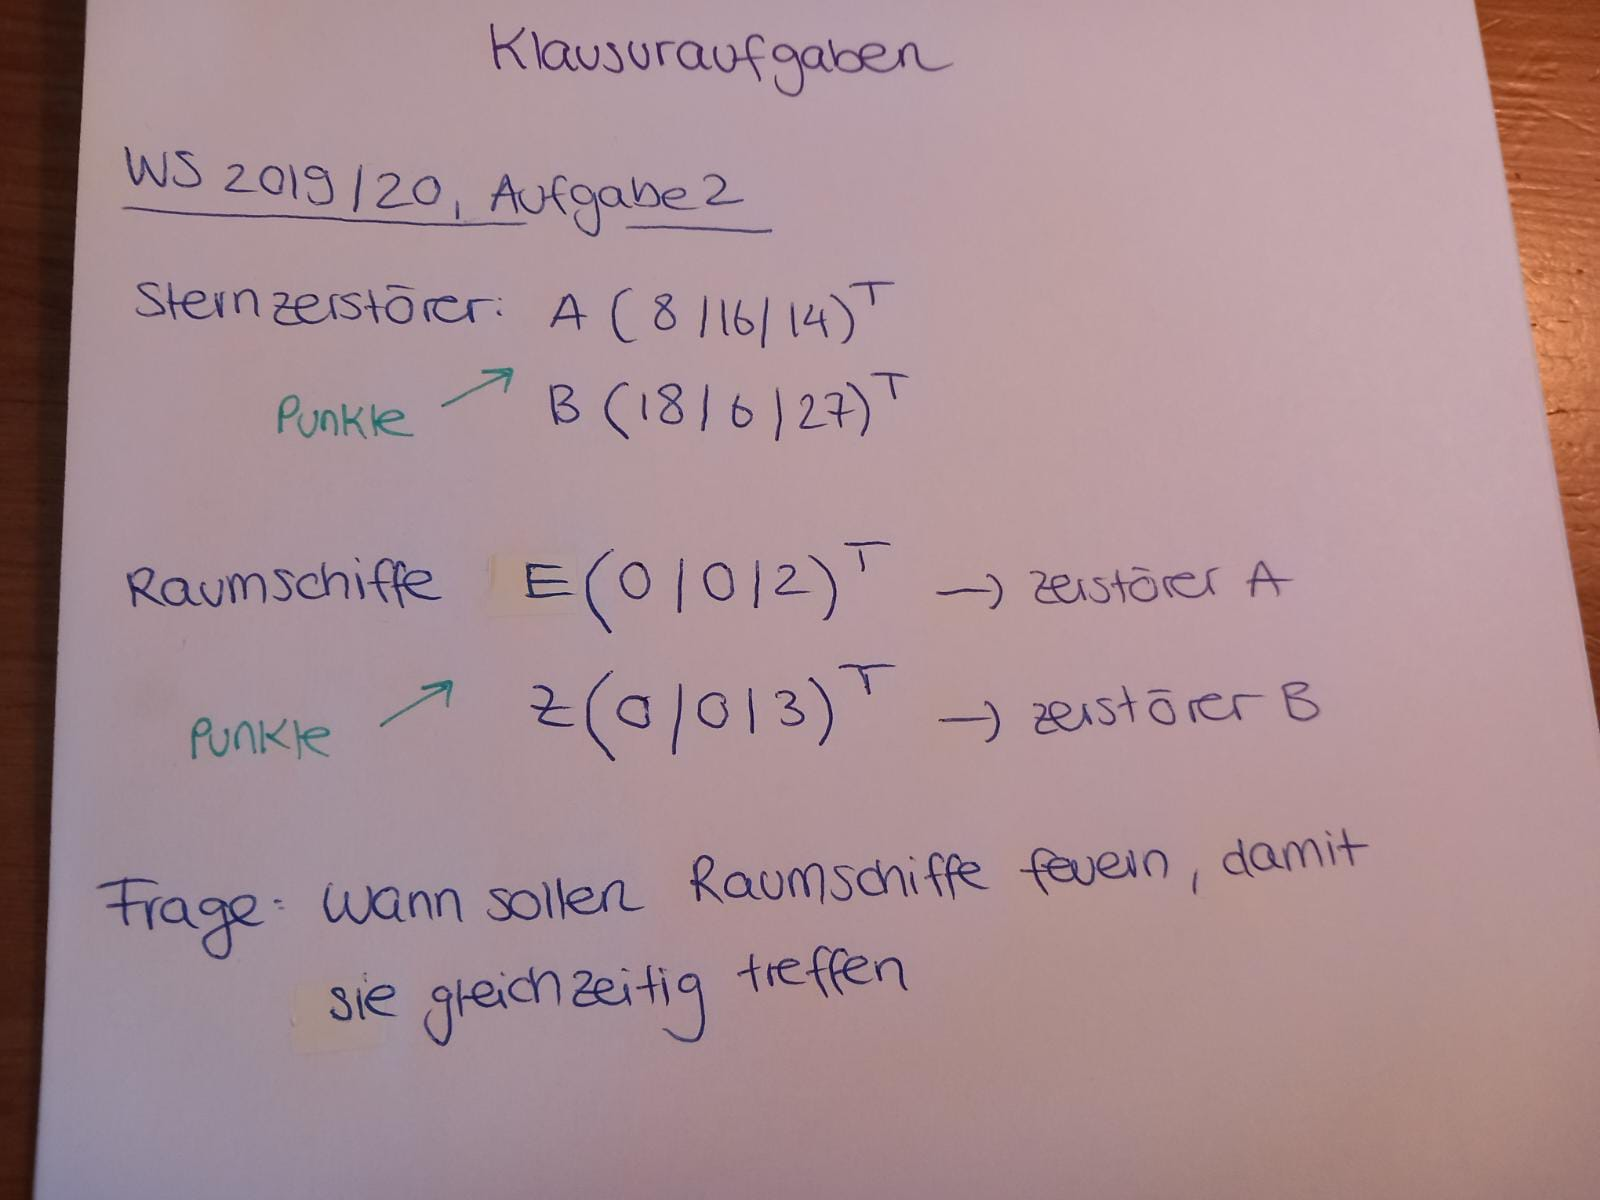 Klausuraufgaben
WS 2019/20, Aufgabe 2
Sternzerstörer: A (8/16/14)ᵀ
Punkte → B (18/6/27)ᵀ
Raumschiffe E(0/0/2)ᵀ → zerstörer A
Punkte → Z(0/0/3)ᵀ → zerstörer B
Frage: Wann sollen Raumschiffe feuern, damit
sie gleichzeitig treffen